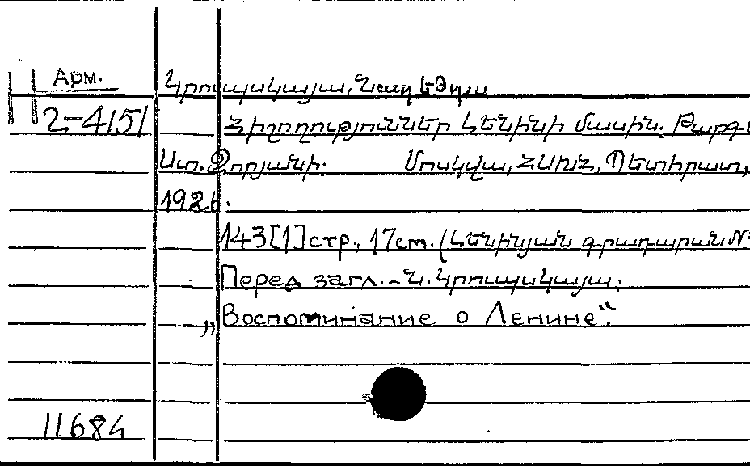 Арм.
Կրուպսկայա, Նադեժդա
Н 2-4151
Հիշողություններ Լենինի մասին. Թարգ
Ստ. Զորյանի. Մոսկվա, ՀՍԽՀ, Պետհրատ,
1926.
143[1] стр., 17см. (Լենինյան գրադարան №
Перед загл.-Ն. Կրուպսկայա.
„Воспоминание о Ленине“.
11684